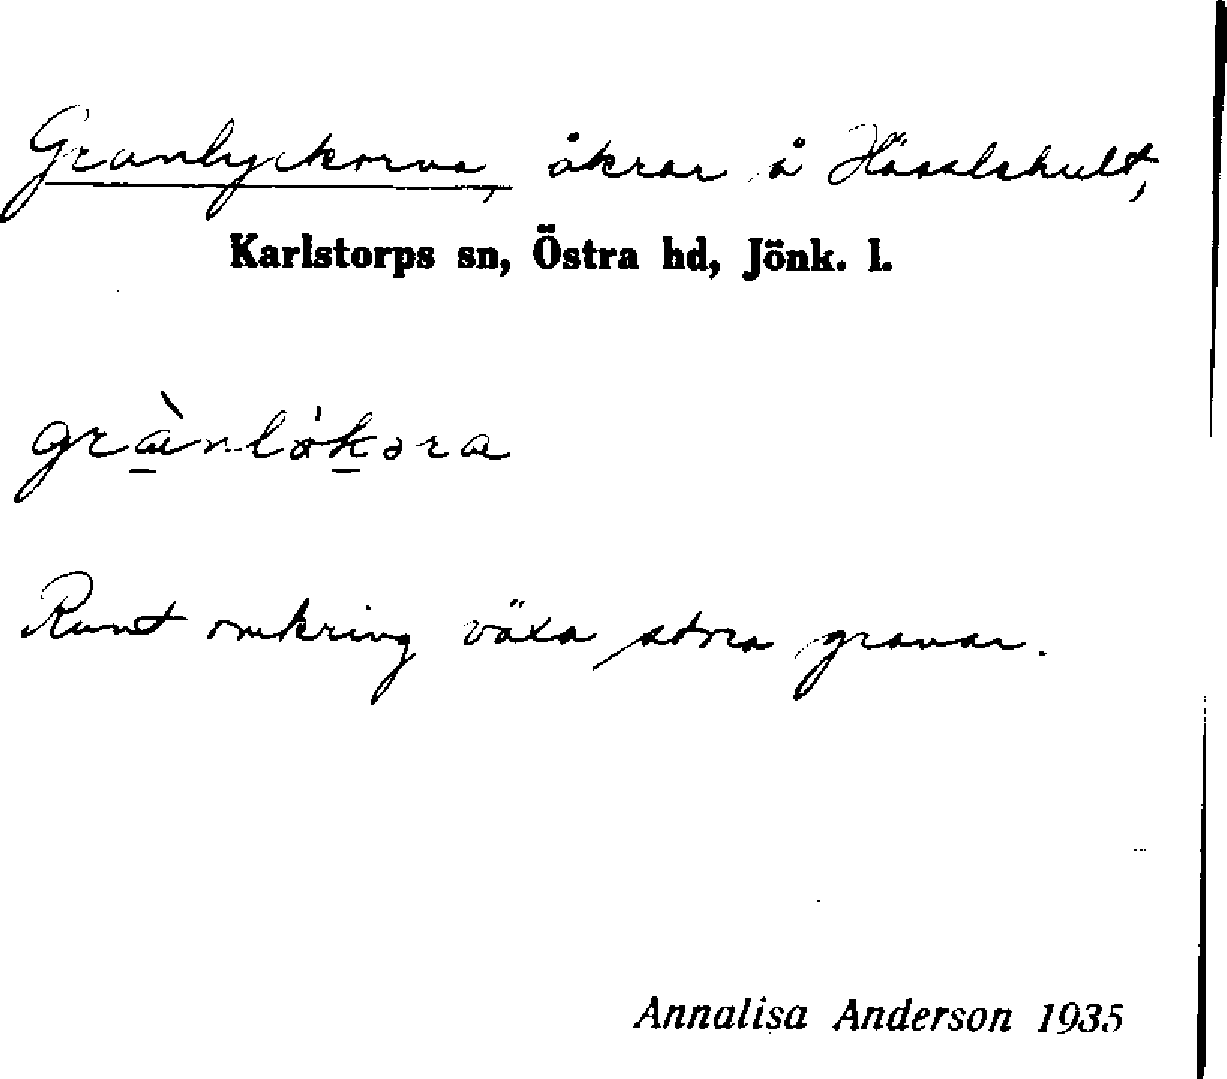 Granlyckorna, åkrar å Hässlehult,
Karlstorps sn, Östra hd, Jönk. l.
Runt omkring växa stora granar.
Annalisa Anderson 1935